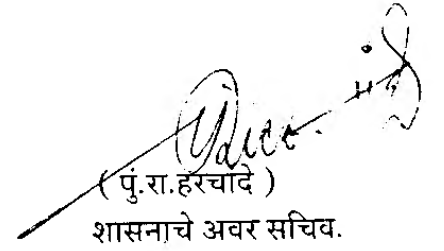 ( पुं.रा.हरचांदे )
शासनाचे अवर सचिव.